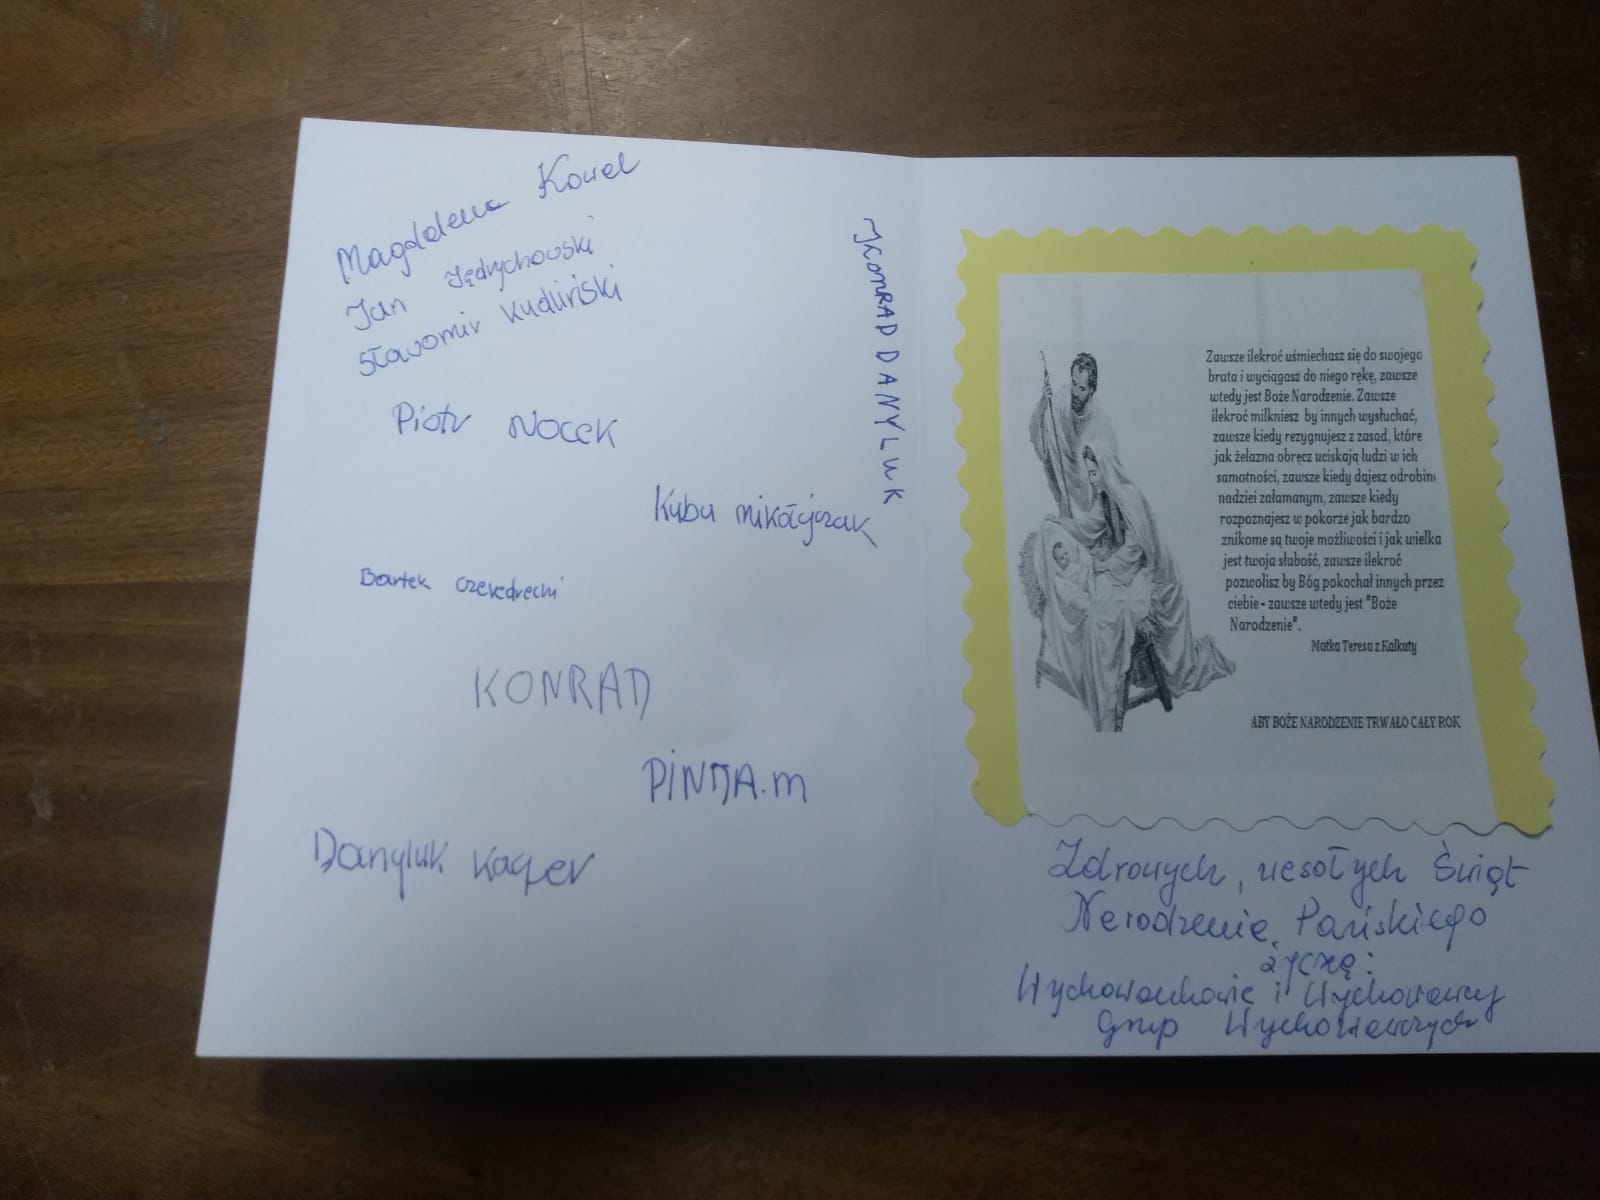 Magdalena Kowel
Jan Jędrychowski
Sławomir Kudliński
Piotr Nocek
KONRAD DANYLUK
Kuba mikołajczak
Bartek
KONRAD
PINDA.m
Danyluk Kacper
Zawsze ilekroć uśmiechasz się do swojego
brata i wyciągasz do niego rękę, zawsze
wtedy jest Boże Narodzenie. Zawsze
ilekroć milkniesz by innych wysłuchać,
zawsze kiedy rezygnujesz z zasad, które
jak żelazna obręcz uciskają ludzi w ich
samotności, zawsze kiedy dajesz odrobin
nadziei załamanym, zawsze kiedy
rozpoznajesz w pokorze jak bardzo
znikome są twoje możliwości i jak wielka
jest twoja słabość, zawsze ilekroć
pozwolisz by Bóg pokochał innych przez
ciebie - zawsze wtedy jest "Boże
Narodzenie".
Matka Teresa z Kalkuty
ABY BOŻE NARODZENIE TRWAŁO CAŁY ROK
Zdrowych, wesołych Świąt
Narodzenia Pańskiego
życzą:
Wychowankowie i Wychowawcy
Grup Wychowawczych